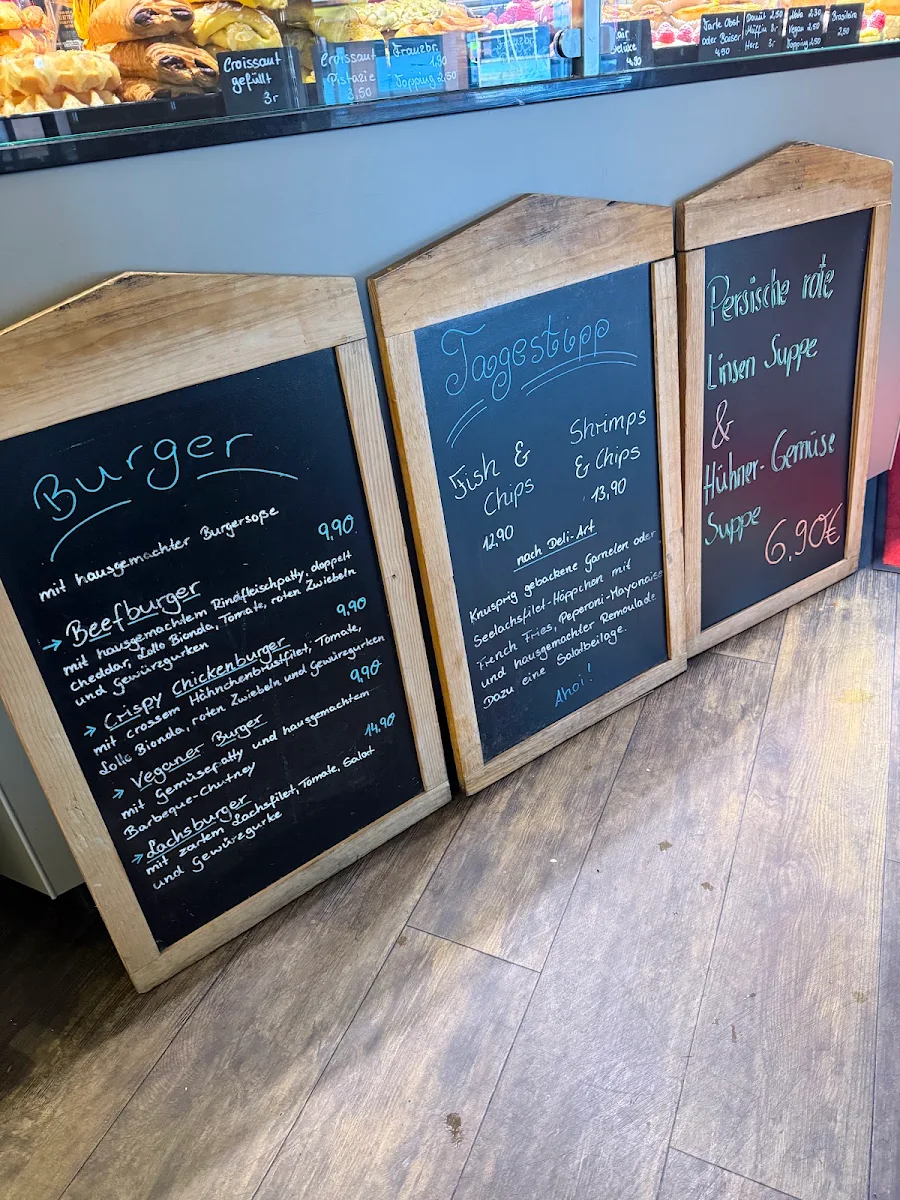 Croissant
gefüllt
3,-
Croissant
Pistazie
3,50
Franzbr.
1,90
Topping 2,50
Franzbr.
4,90
Tarte Obst
oder Baiser
4,50
Donut 2,50
Muffin 3,-
Herz 3,-
2,30
Vegan 2,50
Topping 2,50
Brasileira
2,50
Burger
mit hausgemachter Burgersoße
9,90
→ Beefburger
mit hausgemachtem Rindfleischpatty, doppelt
cheddar, Lollo Bionda, Tomate, roten Zwiebeln
und Gewürzgurken
9,90
→ Crispy Chickenburger
mit crossem Hähnchenbrustfilet, Tomate,
Lollo Bionda, roten Zwiebeln und Gewürzgurken
9,90
→ Veganer Burger
mit Gemüsepatty und hausgemachtem
Barbeque-Chutney
14,90
→ Lachsburger
mit zartem Lachsfilet, Tomate, Salat
und Gewürzgurke
Taggestipp
Fish &
Chips
1290
Shrimps
& Chips
13,90
nach Deli-Art
Knusprig gebackene Garnelen oder
Seelachsfilet-Häppchen mit
French Fries, Peperoni-Mayonaise
und hausgemachter Remoulade
Dazu eine Salatbeilage.
Ahoi!
Persische rote
Linsen Suppe
&
Hühner-Gemüse
Suppe
6,90€